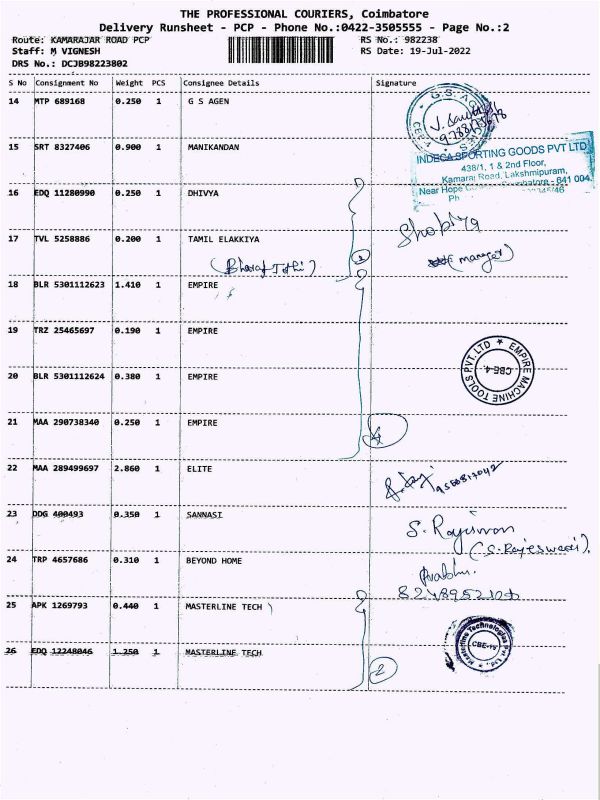 THE PROFESSIONAL COURIERS, Coimbatore
Delivery Runsheet - PCP - Phone No.:0422-3505555 - Page No.:2
Route: KAMARAJAR ROAD PCP RS No.: 982238
Staff: M VIGNESH RS Date: 19-Jul-2022
DRS No.: DCJB98223802
S No Consignment No Weight PCS Consignee Details Signature
14 MTP 689168 0.250 1 G S AGEN
G.S. AGEN
CBE-4
15 SRT 8327406 0.900 1 MANIKANDAN
INDECA SPORTING GOODS PVT LTD
436/1, 1 & 2nd Floor,
Kamaraj Road, Lakshmipuram,
Near Hope Coimbatore - 641 004
Ph
16 EDQ 11280990 0.250 1 DHIVYA
17 TVL 5258886 0.200 1 TAMIL ELAKKIYA
(manager)
2
18 BLR 5301112623 1.410 1 EMPIRE
19 TRZ 25465697 0.190 1 EMPIRE
EMPIRE MACHINE TOOLS PVT. LTD
CBE-4
20 BLR 5301112624 0.380 1 EMPIRE
21 MAA 290738340 0.250 1 EMPIRE
4
22 MAA 289499697 2.860 1 ELITE
23 DDG 400493 0.350 1 SANNASI
(S. Rajeswari)
24 TRP 4657686 0.310 1 BEYOND HOME
Prabhu.
25 APK 1269793 0.440 1 MASTERLINE TECH
Masterline Technologies Pvt. Ltd.,
CBE-15
26 EDQ 12248046 1.250 1 MASTERLINE TECH
2